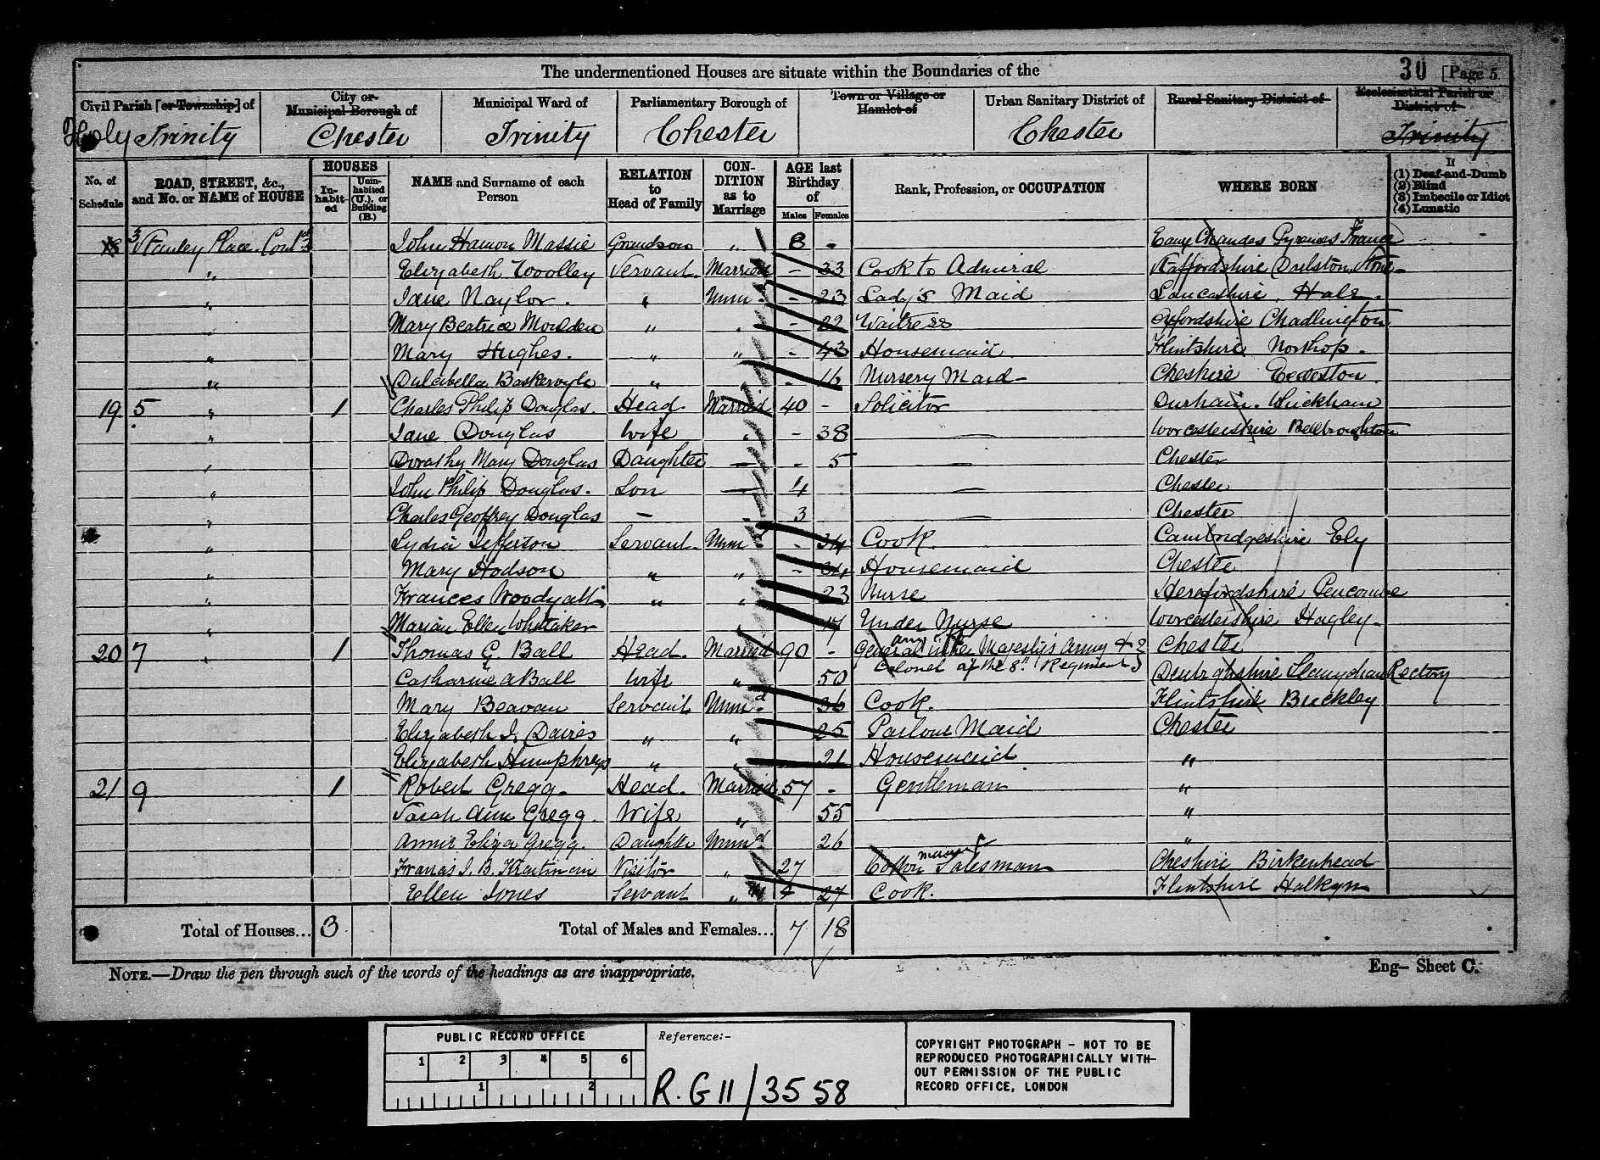 The undermentioned Houses are situate within the Boundaries of the
30 [Page 5
Civil Parish [or Township] of
City or Municipal Borough of
Municipal Ward of
Parliamentary Borough of
Town or Village or Hamlet of
Urban Sanitary District of
Rural Sanitary District of
Ecclesiastical Parish or District of
Holy Trinity
Chester
Trinity
Chester
Chester
Trinity
No. of Schedule
ROAD, STREET, &c., and No. or NAME of HOUSE
HOUSES
In-habit-ed
Unin-habited (U.), or Building (B.)
NAME and Surname of each Person
RELATION to Head of Family
CON-DITION as to Marriage
AGE last Birthday of
Males
Females
Rank, Profession, or OCCUPATION
WHERE BORN
If
(1) Deaf-and-Dumb
(2) Blind
(3) Imbecile or Idiot
(4) Lunatic
18 3 Stanley Place Contd John Hamon Massie Grandson " 8 - Chandes Pyrenees France
" Elizabeth Woolley Servant Married - 33 Cook to Admiral Staffordshire Stone
" Jane Naylor. " Unm - 23 Lady's Maid Lancashire. Hale.
" Mary Beatrice Moulden " " - 22 Waitress Oxfordshire Chadlington
" Mary Hughes. " " - 43 Housemaid Flintshire Northop.
" Dulabella Baskervyle " - 16 Nursery Maid Cheshire Eccleston.
19 5 " 1 Charles Philip Douglas. Head. Married 40 - Solicitor Durham. Whickham
" Jane Douglas Wife " - 38 — Worcestershire Bellbroughton
" Dorothy Mary Douglas Daughter — - 5 — Chester
" John Philip Douglas. Son — 4 — Chester
" Charles Geoffrey Douglas — " 3 — Chester
" Lydia Jefferson Servant. Unm - 34 Cook. Cambridgeshire Ely
" Mary Hodson " " - 24 Housemaid Chester
" Frances Woodyatt " " 23 Nurse Herefordshire Pencombe
" Marian Ellen Whitaker " 17 Under Nurse Worcestershire Hagley
20 7 " 1 Thomas G. Ball Head. Married 90 - General in Her Majesty's Army & Chester
Colonel of the 8th Regiment
Catharine A Ball Wife " 50 Denbighshire Rectory
Mary Beavan Servant Unmd 36 Cook. Flintshire Buckley
Elizabeth J. Davies " " 25 Parlour Maid Chester
Elizabeth Humphreys " " 21 Housemaid "
21 9 1 Robert Gregg. Head. Married 57 - Gentleman "
Sarah Ann Gregg. Wife " 55 "
Annie Eliza Gregg. Daughter Unmd 26 "
Francis J. B. Visitor " 27 Cotton Salesman Cheshire Birkenhead
Ellen Jones Servant " 27 Cook. Flintshire Halkyn
Total of Houses... 3
Total of Males and Females... 7 18
NOTE.—Draw the pen through such of the words of the headings as are inappropriate.
Eng– Sheet C.
PUBLIC RECORD OFFICE
1 2 3 4 5 6
1 2
Reference:-
R.G 11/3558
COPYRIGHT PHOTOGRAPH – NOT TO BE
REPRODUCED PHOTOGRAPHICALLY WITH-
OUT PERMISSION OF THE PUBLIC
RECORD OFFICE, LONDON